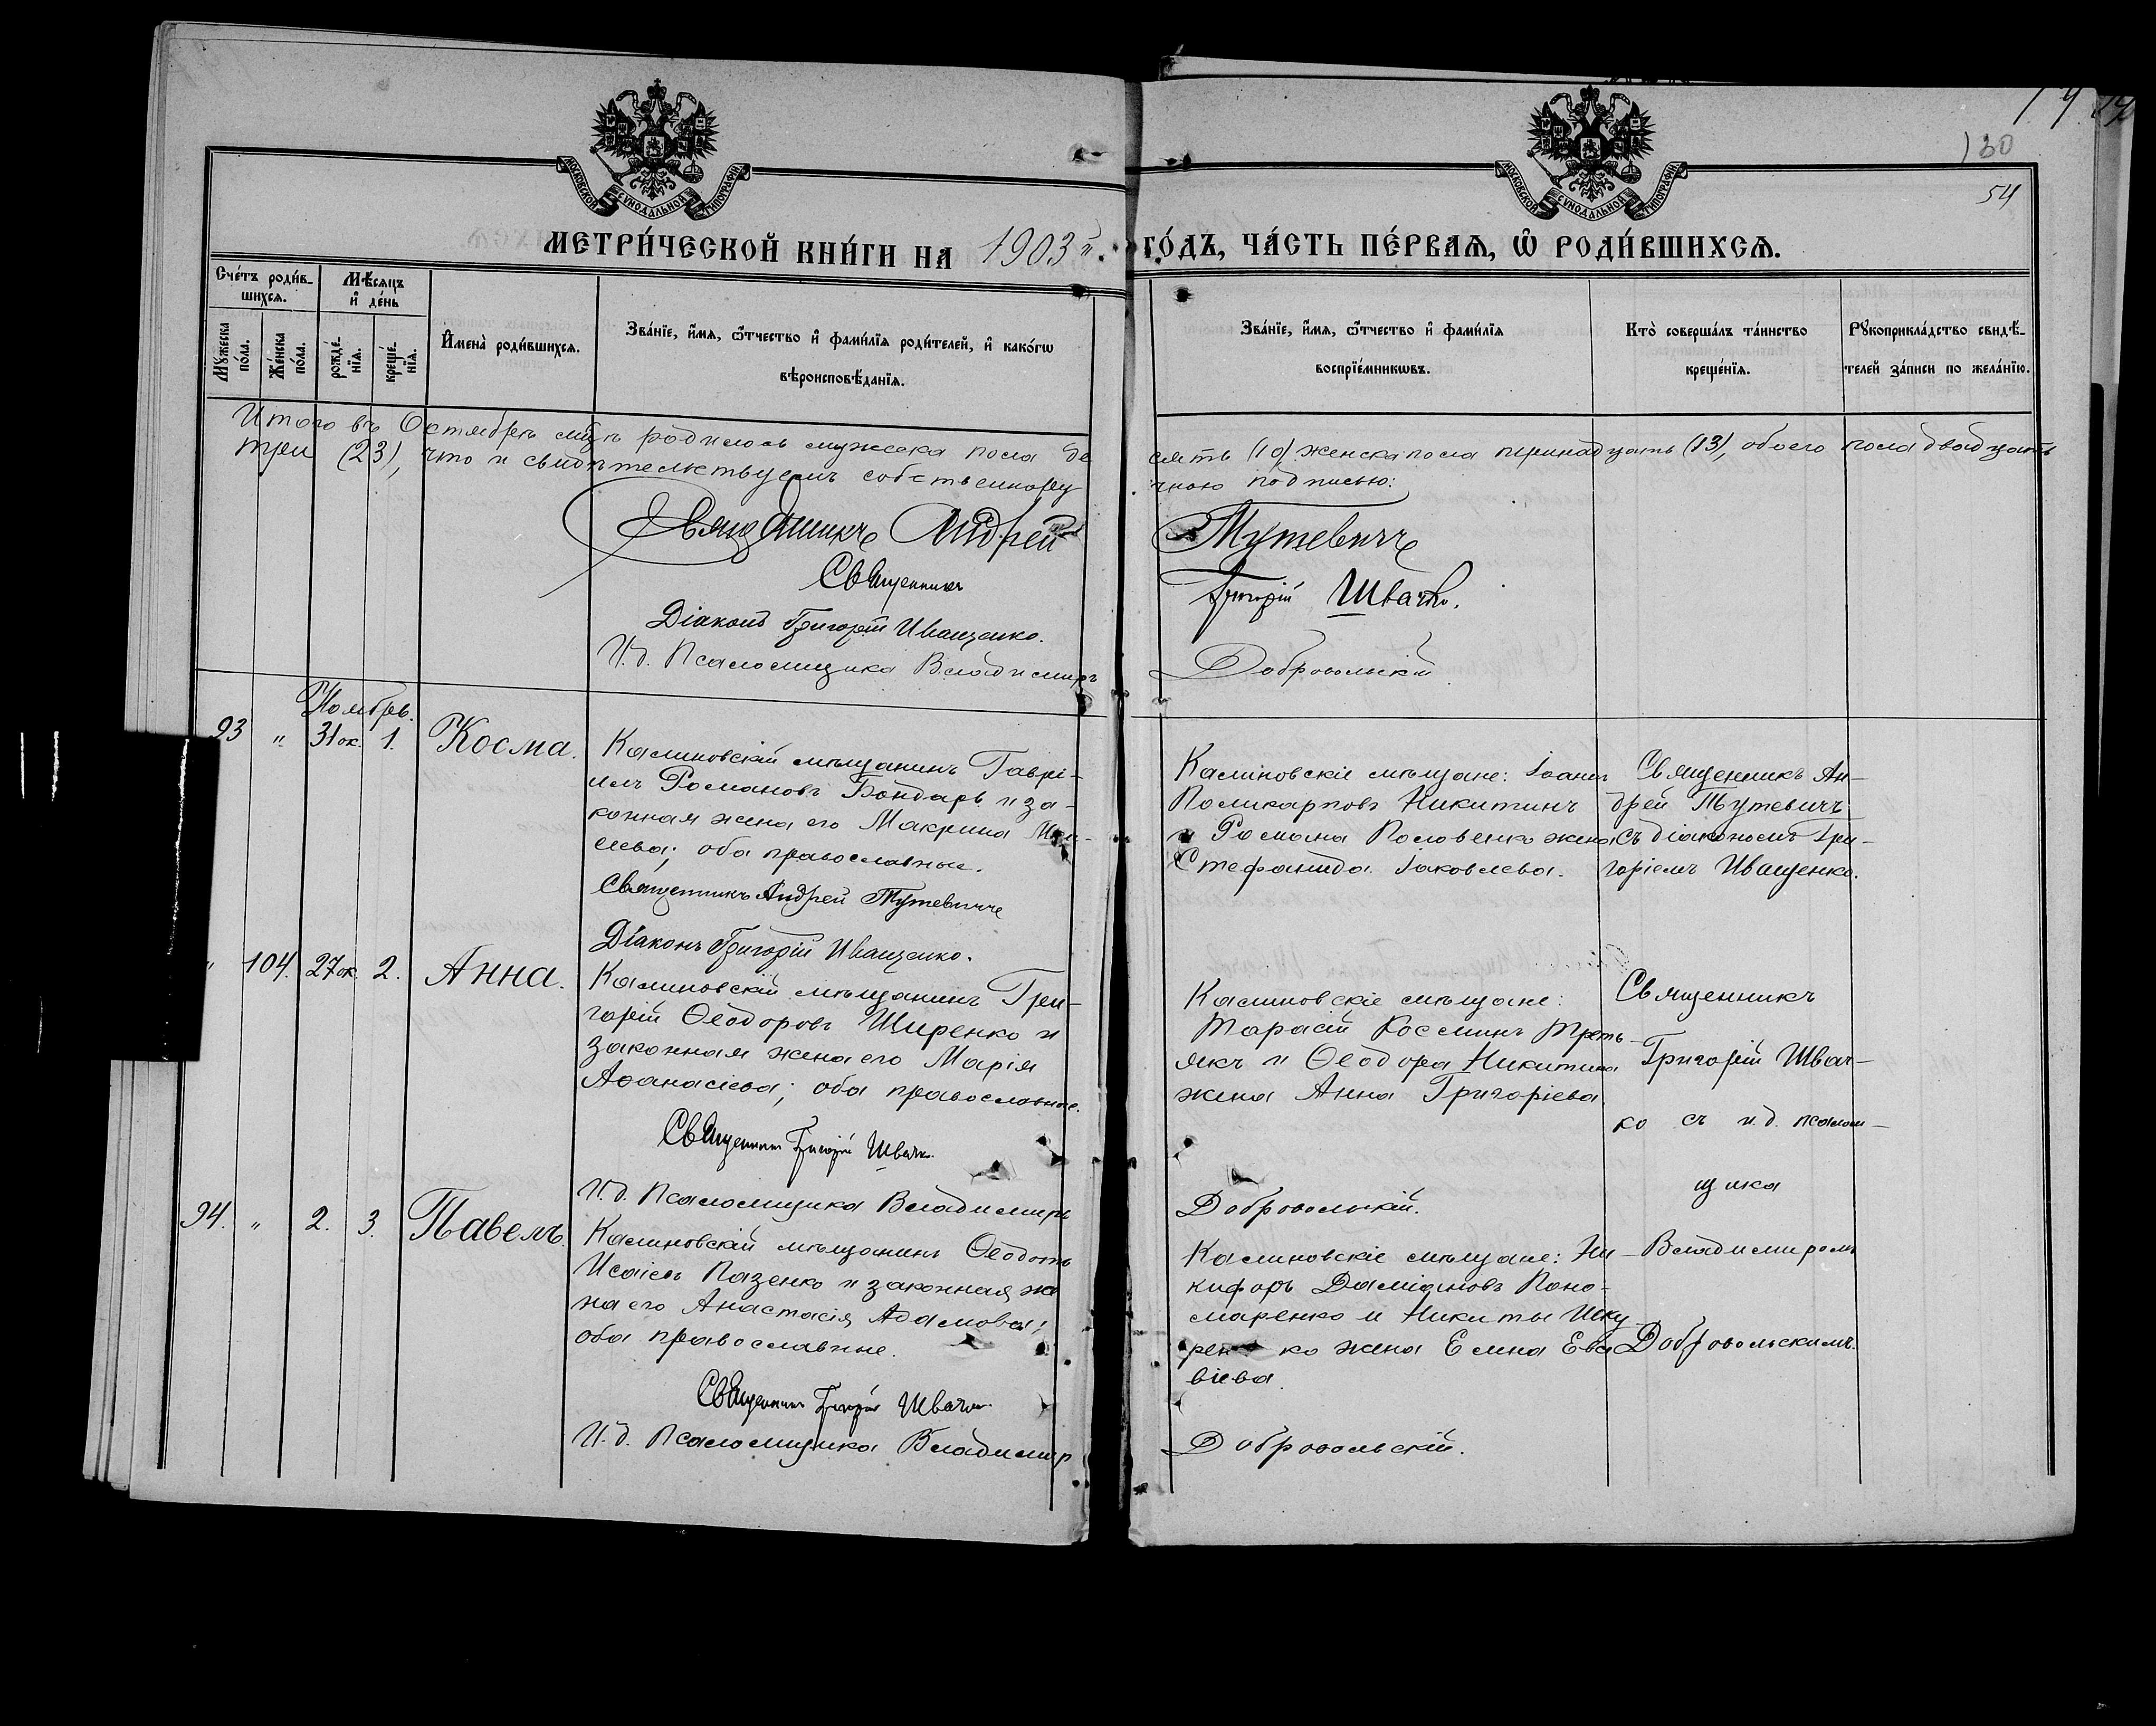 МОСКОВСКОЙ СѴНОДАЛЬНОЙ ТИПОГРАФІИ
МОСКОВСКОЙ СѴНОДАЛЬНОЙ ТИПОГРАФІИ
130
54
МЕТРИ́ЧЕСКОЙ КНИ́ГИ НА 1903й. ГО́ДЪ, ЧА́СТЬ ПЕ́РВАѦ, Ѡ҆ РОДИ́ВШИХСѦ.
Сче́тъ роди́в-
шихсѧ.
Мѣ́сяцъ
и҆ де́нь
Мꙋ́жеска
по́ла.
Же́нска
по́ла.
рожде́-
нїѧ.
креще́-
нїѧ.
И҆мена̀ роди́вшихсѧ.
Зва́нїе, и҆́мѧ, ѻ҆́тчество и҆ фами́лїѧ роди́телей, и҆ како́гѡ
вѣроисповѣ́данїѧ.
Зва́нїе, и҆́мѧ, ѻ҆́тчество и҆ фами́лїѧ
воспрїе́мникѡвъ.
Кто̀ соверша́лъ та́инство
креще́нїѧ.
Рꙋкоприкла́дство свидѣ́-
телей за́писи по жела́нїю.
Итого въ Октябрѣ мцѣ родилось мужеска пола де
сять (10) женска пола тринадцать (13), обоего пола двадцать
три (23), что и свидѣтельствуемъ собственнору
чною подписью:
Священникъ Андрей Тутевичъ
Священникъ Григорій Швачко.
Діаконъ Григорій Иващенко.
И. д. Псаломщика Владимиръ Добровольскій
Ноябрь.
93 " 31 ок. 1. Косма.
Калиновскій мѣщанинъ Гаврі-
илъ Романовъ Бондарь и за-
конная жена его Макрина
сіева; оба православные.
Священникъ Андрей Тутевичъ
Діаконъ Григорій Иващенко.
Калиновскіе мѣщане: Іоаннъ
Поликарповъ Никитинъ
и Романа Половенко жена
Стефанида Іаковлева.
Священникъ Ан-
дрей Тутевичъ
съ діакономъ Гри-
горіемъ Иващенко.
" 104. 27 ок. 2. Анна.
Калиновскій мѣщанинъ Гри-
горій Ѳеодоровъ Ширенко и
законная жена его Марія
Аѳанасіева; оба православные.
Священникъ Григорій Швачко.
И. д. Псаломщика Владимиръ
Калиновскіе мѣщане:
Тарасій Косминъ Треть-
якъ и Ѳеодора Никитина
жена Анна Григоріева.
Добровольскій.
Священникъ
Григорій Швач-
ко съ и. д. псалом-
щика
Владимиромъ
Добровольскимъ.
94. " 2. 3. Павелъ.
Калиновскій мѣщанинъ Ѳеодотъ
Исаіевъ Пазенко и законная же
на его Анастасія Адамова;
оба православные.
Священникъ Григорій Швачко.
И. д. Псаломщика Владимир
Калиновскіе мѣщане: Ни-
кифоръ Даміановъ Поно-
маренко и Никиты Шку
рен ко жена Елена Евс
віева.
Добровольскій.